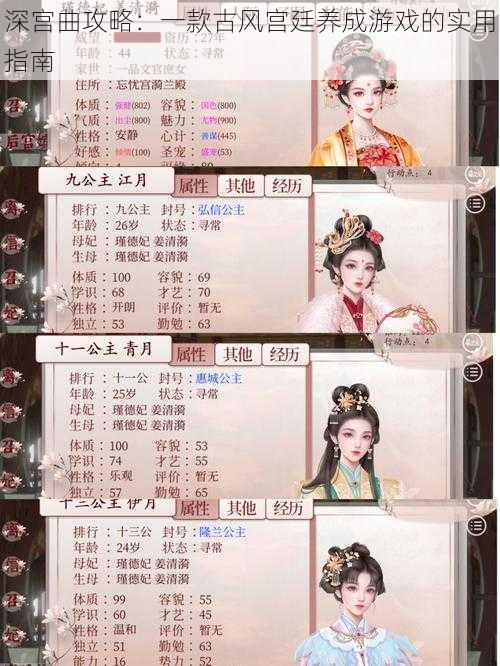 深宫曲攻略：一款古风宫廷养成游戏的实用
指南
瑾德妃 姜清漪
家世：一品文官庶女
住所：忘忧宫漪兰殿
体质：强健(802) 容貌：国色(800)
气质：出尘(800) 魅力：尤物(900)
性格：安静 心计：善谋(445)
好感：倾情(100) 圣宠：盛宠(53)
行动点：4
九公主 江月 属性 其他 经历
排行：九公主 封号：弘信公主
年龄：26岁 状态：寻常
母妃：瑾德妃 姜清漪
生母：瑾德妃 姜清漪
体质：100 容貌：69
学识：68 才艺：70
性格：开朗 评价：暂无
独立：53 勤勉：63
十一公主 青月 属性 其他 经历
行动点：4
排行：十一公 封号：惠城公主
年龄：25岁 状态：寻常
母妃：瑾德妃 姜清漪
生母：瑾德妃 姜清漪
体质：100 容貌：53
学识：74 才艺：55
性格：乐观 评价：暂无
独立：57 勤勉：65
十三公主 伊月 属性 其他 经历
排行：十三公 封号：隆兰公主
年龄：24岁 状态：寻常
母妃：瑾德妃 姜清漪
生母：瑾德妃 姜清漪
体质：99 容貌：55
学识：60 才艺：45
性格：温和 评价：暂无
能力：16 势力：52